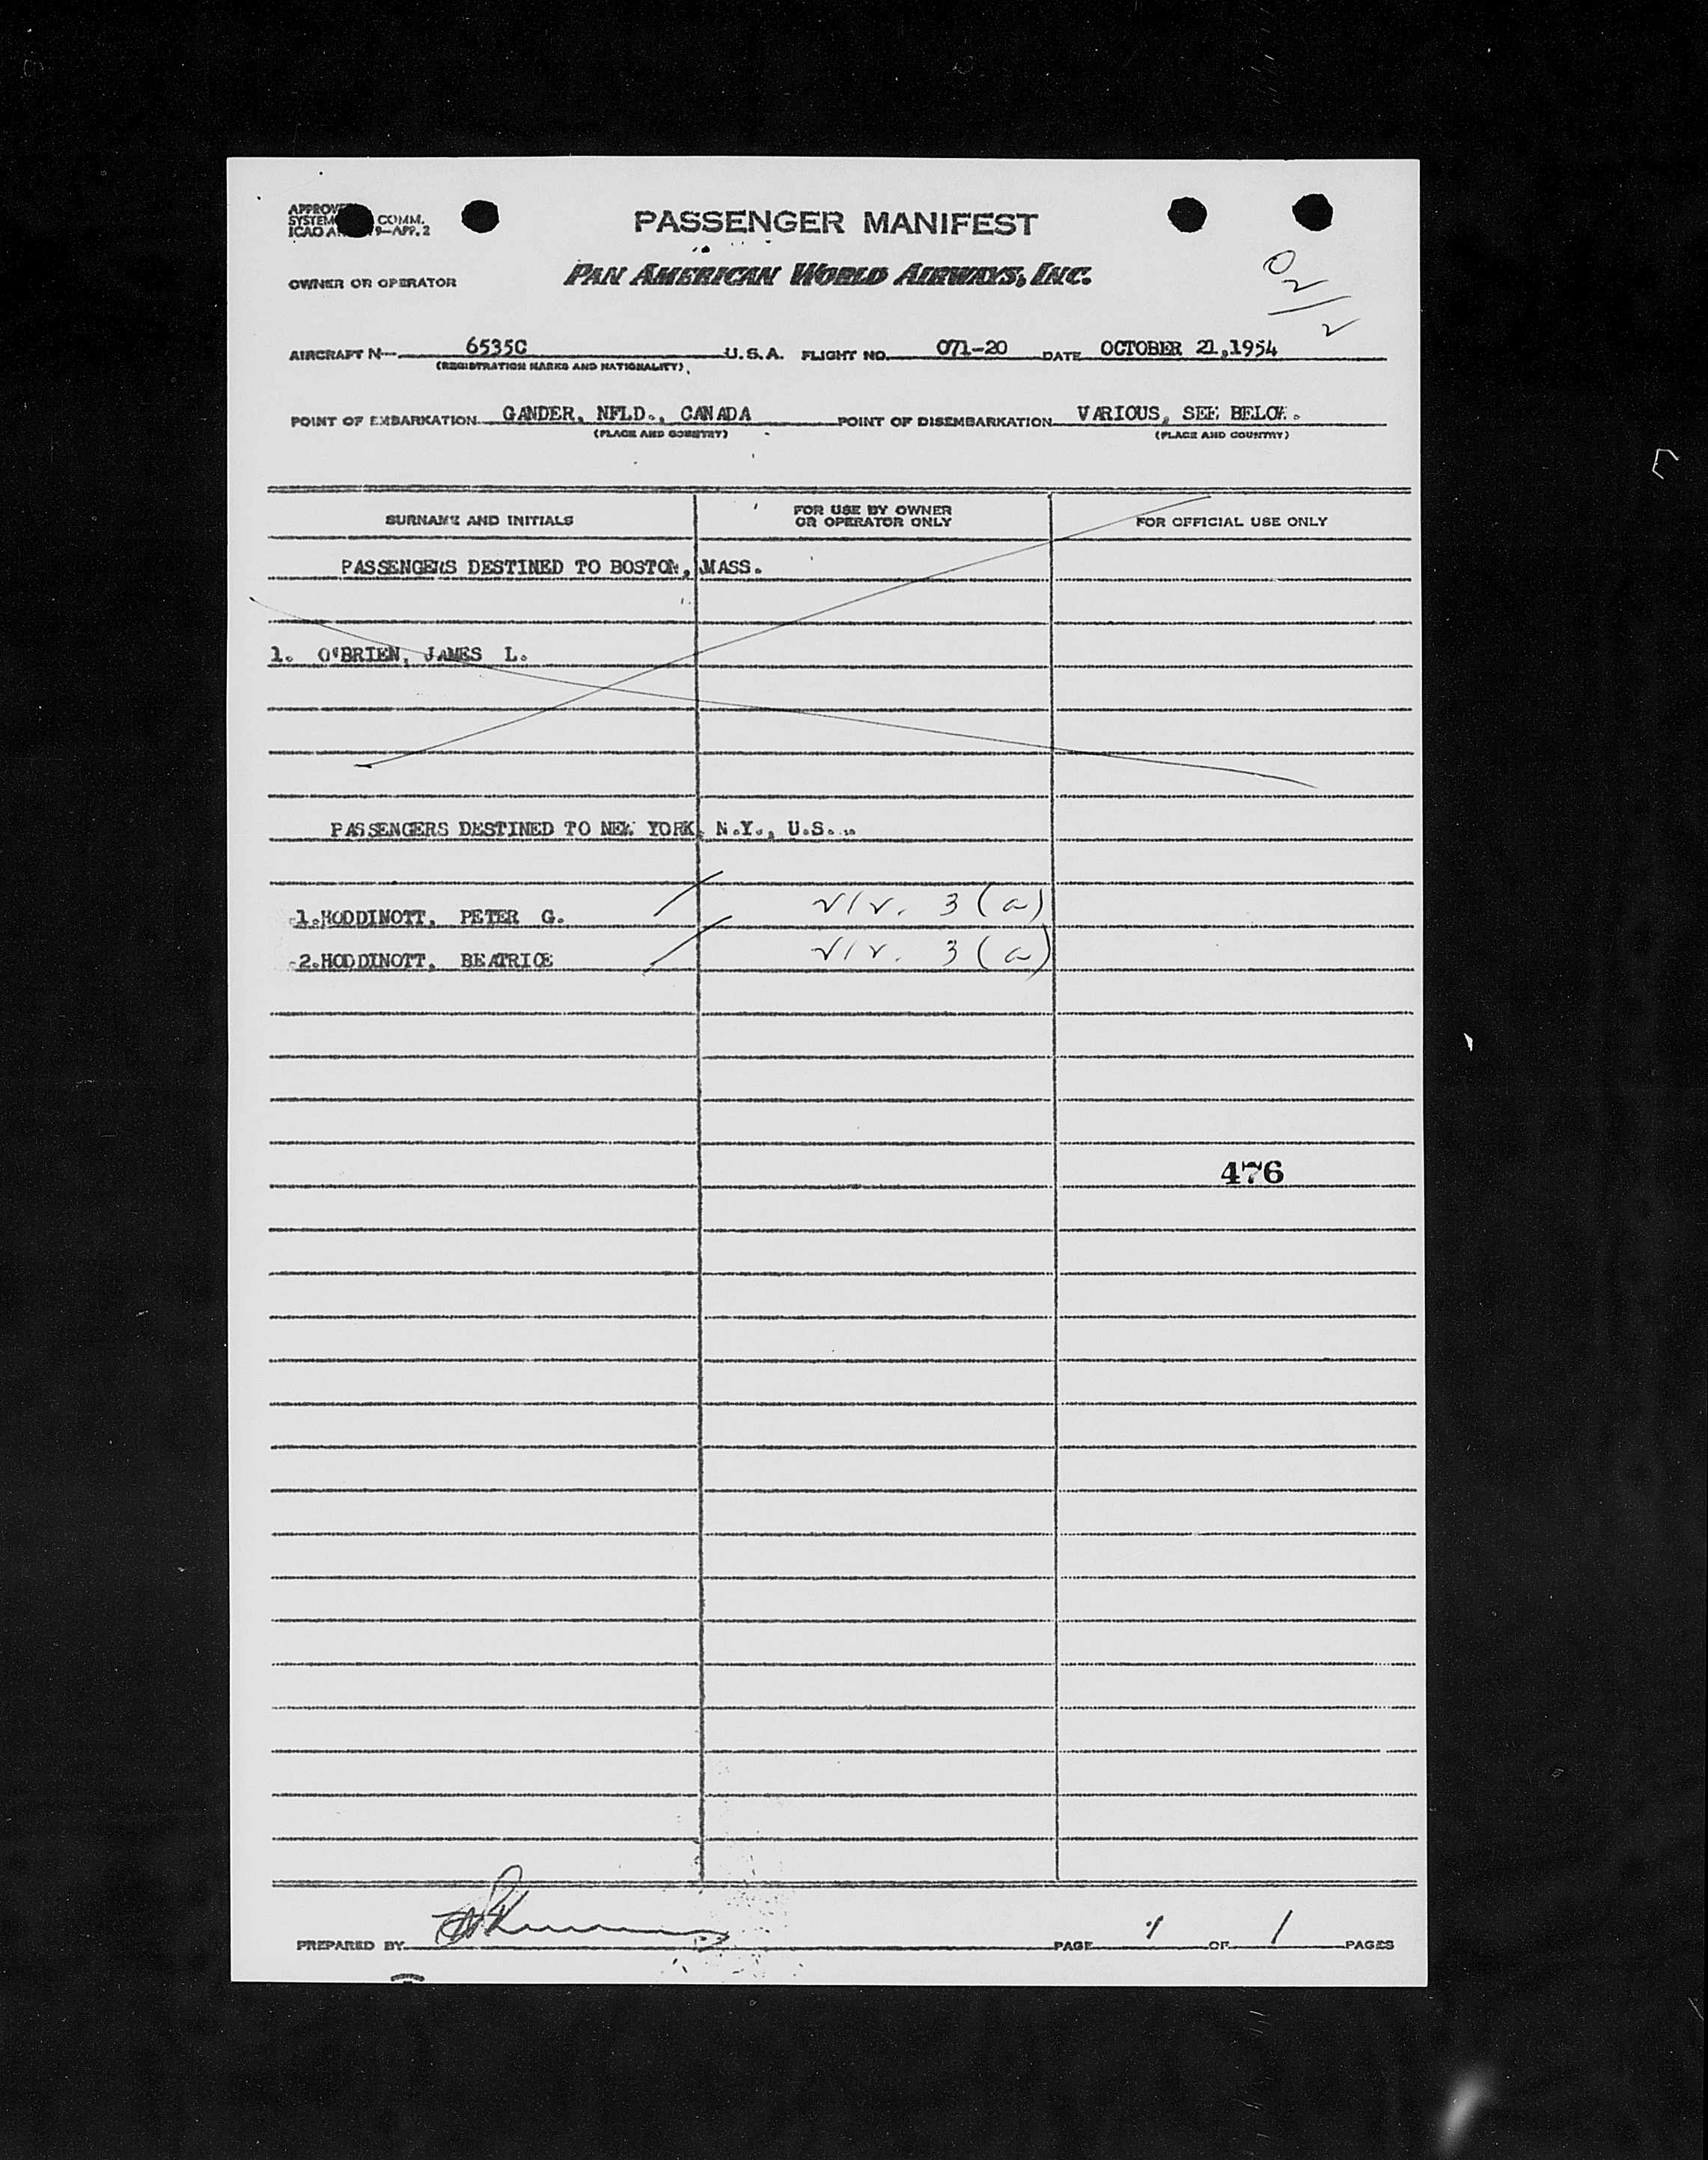 PASSENGER MANIFEST
COMM.
9—APP. 2
OWNER OR OPERATOR PAN AMERICAN WORLD AIRWAYS, INC.
0
2
2
AIRCRAFT N— 6535C U.S.A. FLIGHT NO. 071-20 DATE OCTOBER 21,1954
(REGISTRATION MARKS AND NATIONALITY)
POINT OF EMBARKATION GANDER, NFLD., CANADA POINT OF DISEMBARKATION VARIOUS, SEE BELOW.
(PLACE AND COUNTRY) (PLACE AND COUNTRY)
SURNAME AND INITIALS FOR USE BY OWNER OR OPERATOR ONLY FOR OFFICIAL USE ONLY
PASSENGERS DESTINED TO BOSTON, MASS.
1. O'BRIEN, JAMES L.
PASSENGERS DESTINED TO NEW YORK, N.Y., U.S.
1.HODDINOTT, PETER G. 3 (a)
2.HODDINOTT, BEATRICE 3 (a)
476
PREPARED BY PAGE 1 OF 1 PAGES